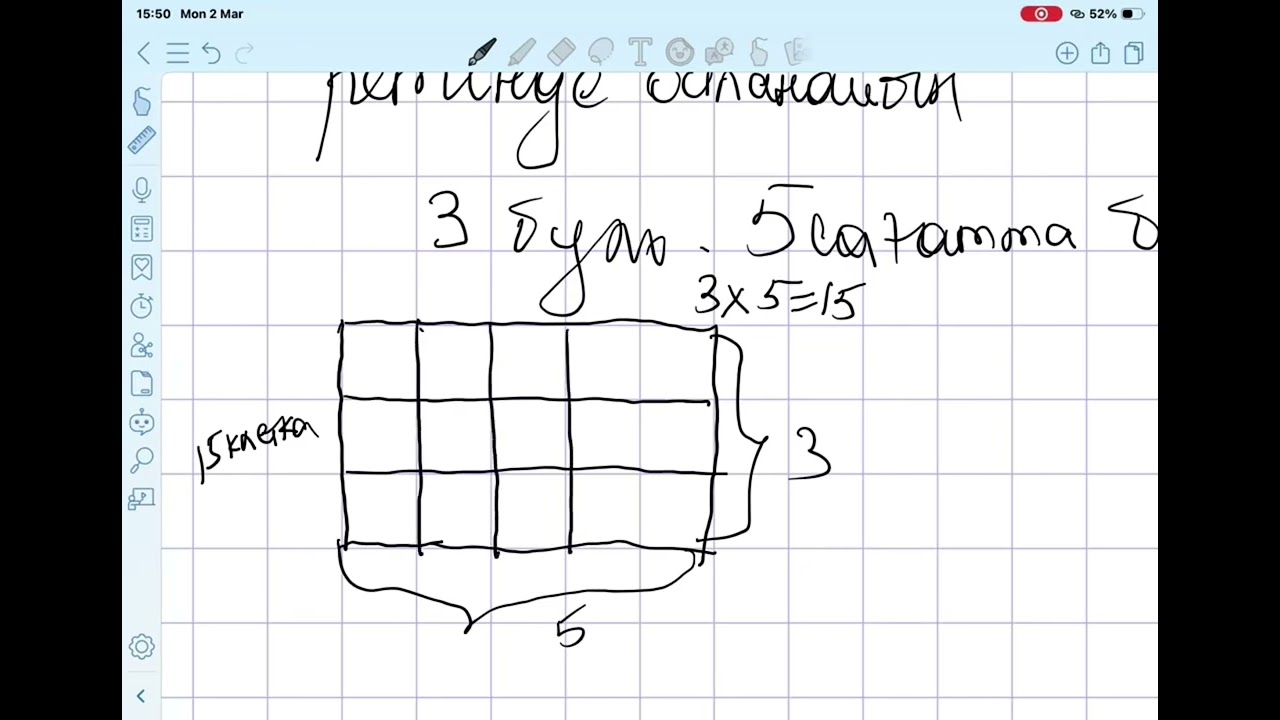 15:50 Mon 2 Mar
52%
3 бұғы . 5 сағатта б
3 x 5 = 15
15 клетка
3
5